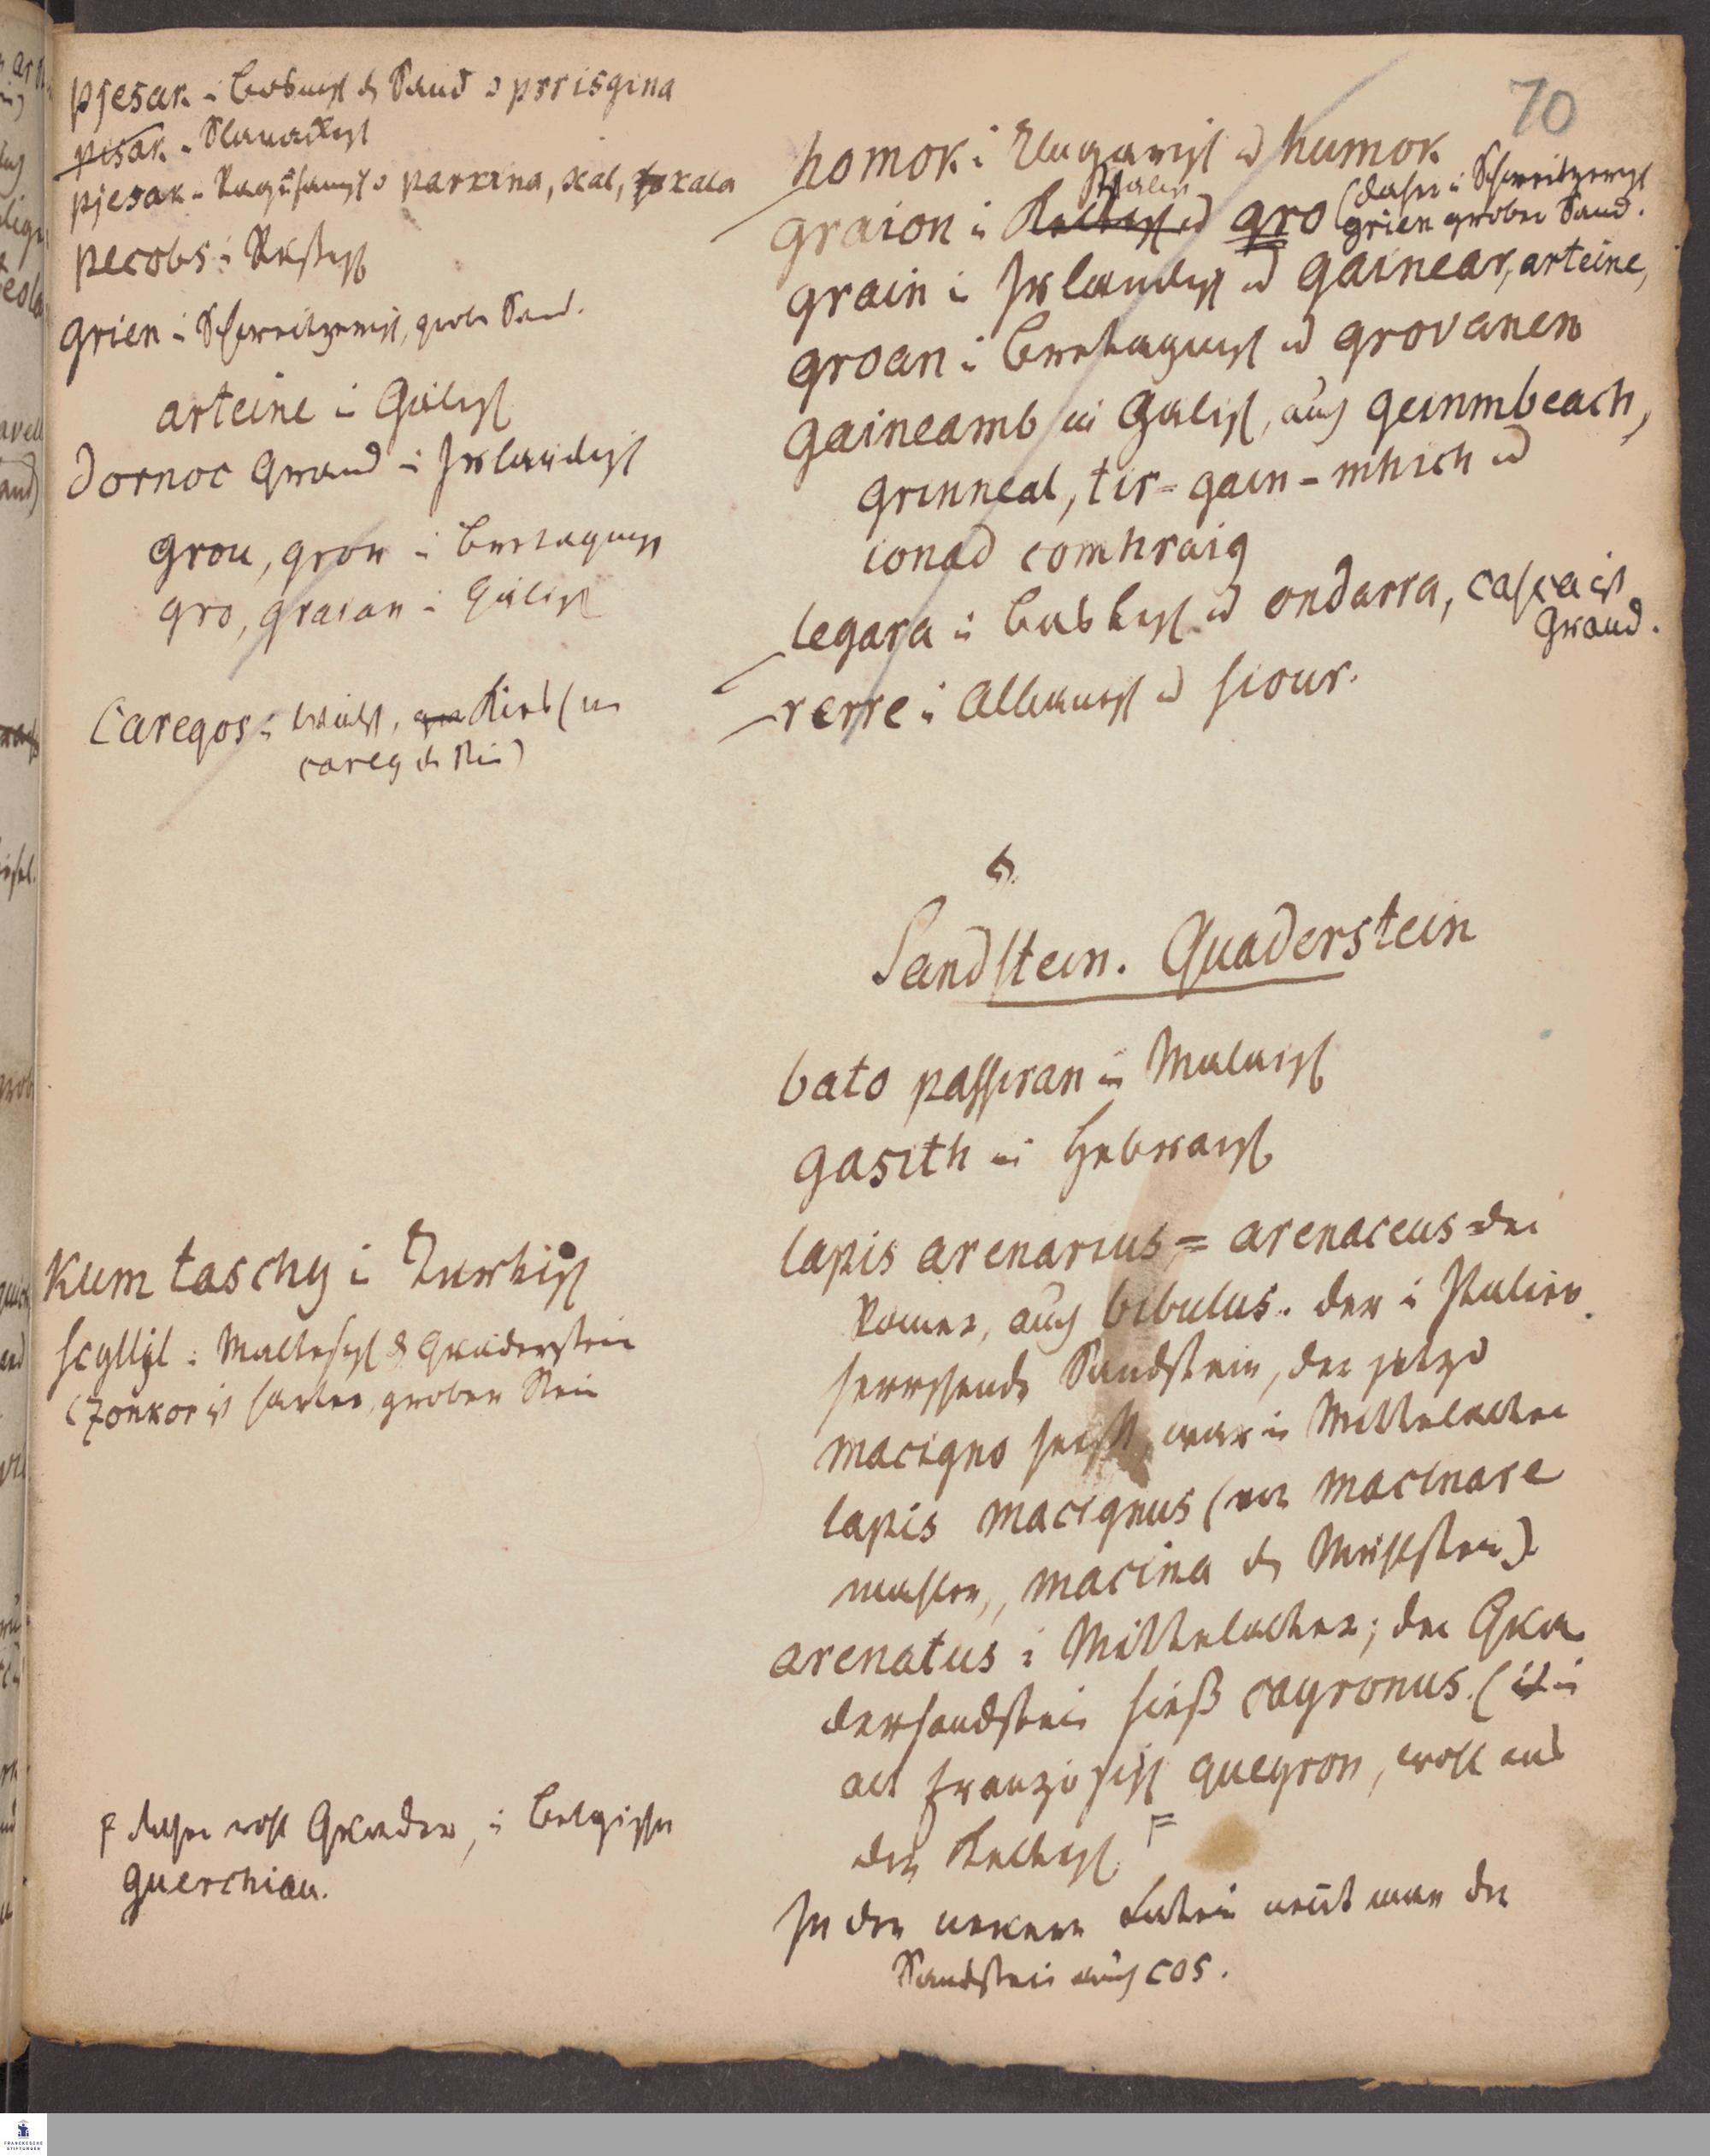 70
pjesak i Bosnisch d Sand u prrisgina
pisak i Slavackisch
pjesak i Ragusanisch u parxina, xal, xala
pecobs i Rußisch
grien i Schweitzerisch, grober Sand.
arteine i Gälisch
dornoc Grand i Irländisch
grou, grow i Bretagnisch
gro, graian i Gälisch
Caregos i wälsch, Kies (von
careg d Stein)
Kum taschy i Türkisch
scyllyl i Maltesisch d Quaderstein
(zonkor ist harter, grober Stein
F daher wohl Quader, i Belgischen
querchiau.
homok i Ungarisch u humok
graion i Wälisch u gro (daher i Schweitzerisch
grien grober Sand.
grain i Irländisch u gainear, arteine,
groan i Bretagnisch u grovanen
gaineamb in Gälisch, auch geinmbeach,
grinneal, tir-gain-mhich u
ionad comhraig
legara i Baskisch u ondarra, cascaist
Grand.
rerre i Albanisch u siour.
5.
Sandstein. Quaderstein
bato passiran in Malaisch
gasith in Hebräisch
lapis arenarius = arenaceus der
Römer, auch bibulus. der i Italien
herrschende Sandstein, der jetzo
macigno heißt, war in Mittelalter
lapis macignus (von macinare
mahlen, macina d Mühlstein)
arenatus i Mittelalter; der Qua
dersandstein hieß cayronus. (ist i
alt französisch queyron, wohl aus
den Keltisch F
In den neuern Latein nent man den
Sandstein auch cos.
FRANCKESCHE
STIFTUNGEN